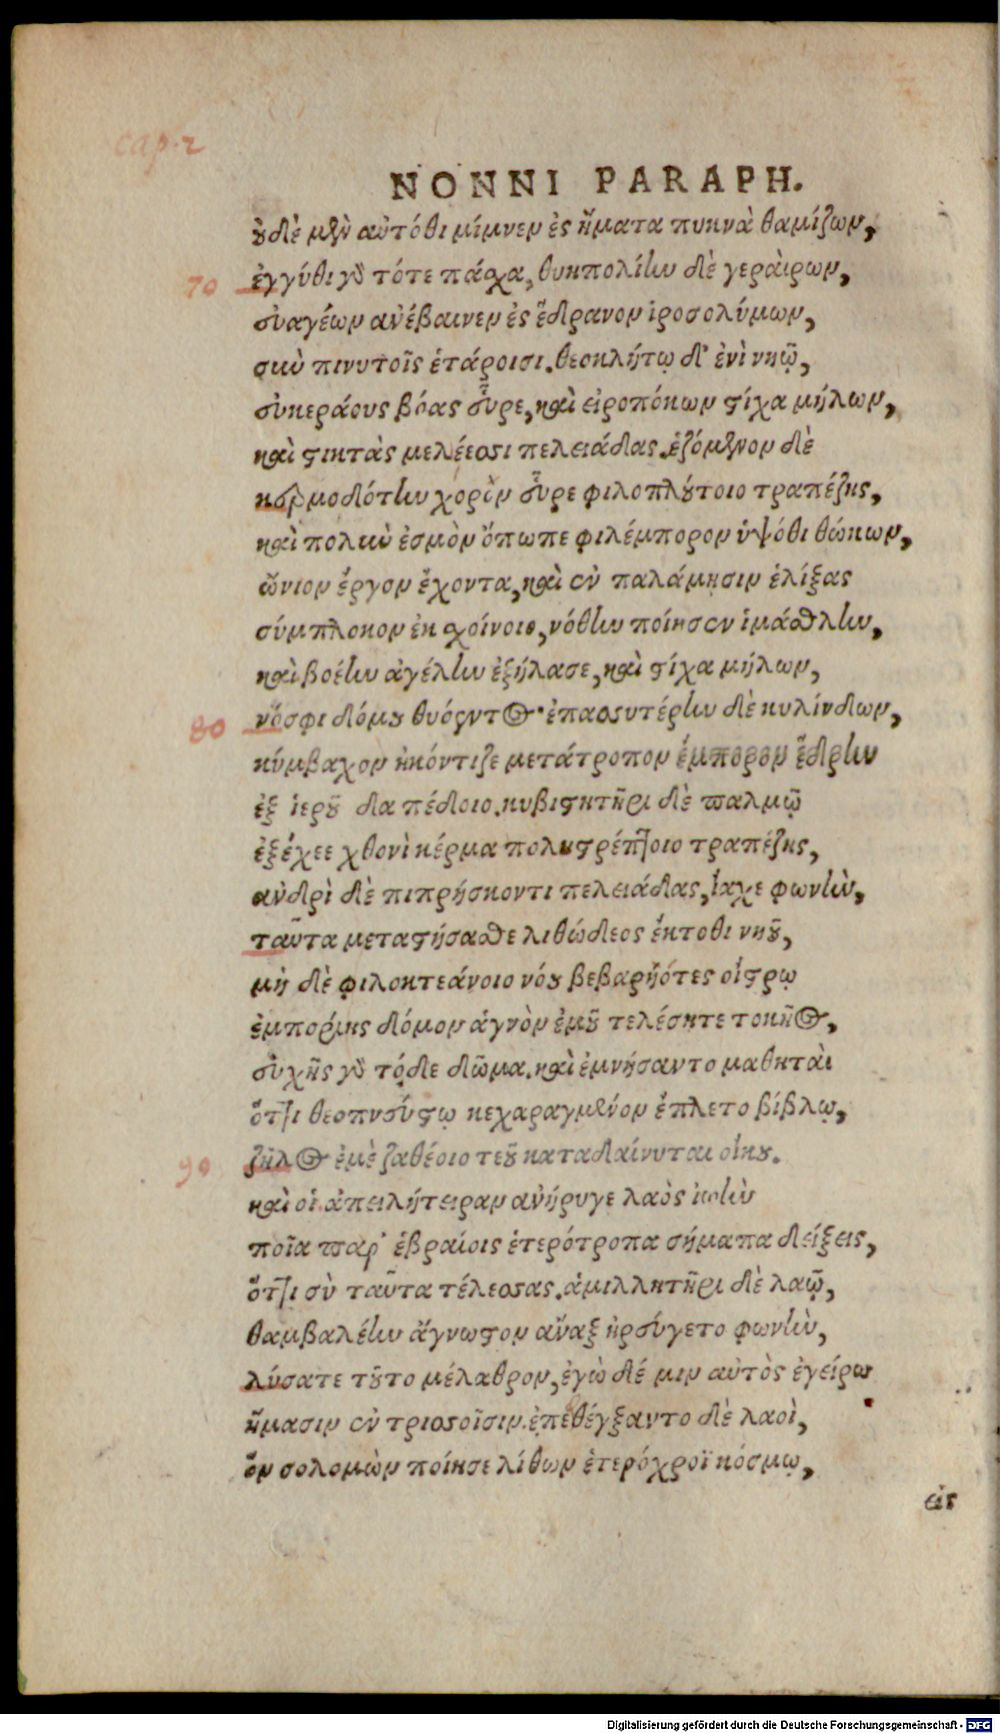 cap. 2
NONNI PARAPH.
οὐδὲ μὲν αὐτόθι μίμνεν ἐς ἤματα πυκνὰ θαμίζων,
70 ἐγγύθι γὸ τότε πάσχα, θυηπολίην δὲ γεράιρων,
συναγέων ἀνέβαινεν ἐς ἕδρανον ἱροσολύμων,
σὺν πινυτοῖς ἑτάροισι. θεοκλήτῳ δ' ἐνὶ νηῷ,
εὐκεράους βόας εὗρε, καὶ εἰροπόκων στίχα μήλων,
καὶ στικτὰς μελέεσσι πελειάδας. ἑζόμενον δὲ
κερμοδότην χορὸν εὗρε φιλοπλούτοιο τραπέζης,
καὶ πολὺν ἐσμὸν ὄπωπε φιλέμπορον ὑψόθι θώκων,
ὤνιον ἔργον ἔχοντα, καὶ ἐν παλάμησιν ἑλίξας
σύμπλοκον ἐκ σχοίνοιο, νόθην ποίησεν ἱμάσθλην,
καὶ βοέην ἀγέλην ἐξήλασε, καὶ στίχα μήλων,
80 νόσφι δόμου θυόεντος· ἐπασσυτέρην δὲ κυλίνδων,
κύμβαχον ἠκόντιζε μετάτροπον ἔμπορον ἕδρην
ἐξ ἱεροῦ δαπέδοιο. κυβιστητῆρι δὲ παλμῷ
ἐξέχεε χθονὶ κέρμα πολυστρέπτοιο τραπέζης,
ἀνδρὶ δὲ πιπρήσκοντι πελειάδας, ἴαχε φωνὴν,
ταῦτα μεταστήσασθε λιθώδεος ἔκτοθι νηοῦ,
μὴ δὲ φιλοκτεάνοιο νόου βεβαρηότες οἴστρῳ
ἐμπορίης δόμον ἁγνὸν ἐμοῦ τελέσητε τοκῆος,
εὐχῆς γὸ τόδε δῶμα. καὶ ἐμνήσαντο μαθητὰι
ὅττι θεοπνεύστῳ κεχαραγμένον ἔπλετο βίβλῳ,
90 ζῆλος ἐμὲ ζαθέοιο τεοῦ καταδαίνυται οἴκου.
καὶ οἱ ἀπειλήτειραν ἀνήρυγε λαὸς ἰωὴν
ποῖα παρ' ἑβραίοις ἑτερότροπα σήμαπα δείξεις,
ὅττι σὺ ταῦτα τέλεσσας. ἁμιλλητῆρι δὲ λαῷ,
θαμβαλέην ἄγνωστον ἄναξ ἠρεύγετο φωνὴν,
λύσατε τοῦτο μέλαθρον, ἐγὼ δέ μιν αὐτὸς ἐγείρω
ἤμασιν ἐν τρισσοῖσιν. ἐπεφθέγξαντο δὲ λαοὶ,
ὃν σολομὼν ποίησε λίθων ἑτερόχροϊ κόσμῳ,
εἰς
Digitalisierung gefördert durch die Deutsche Forschungsgemeinschaft - DFG